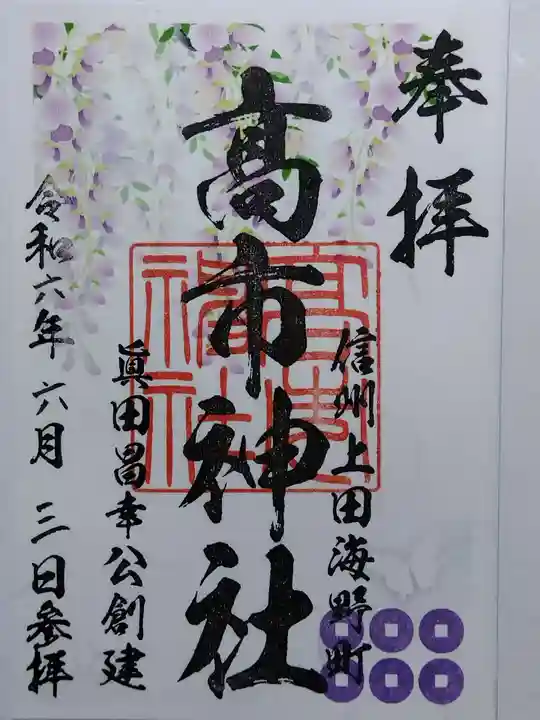 奉拝
信州上田海野町
高市神社
眞田昌幸公創建
令和六年六月三日参拝